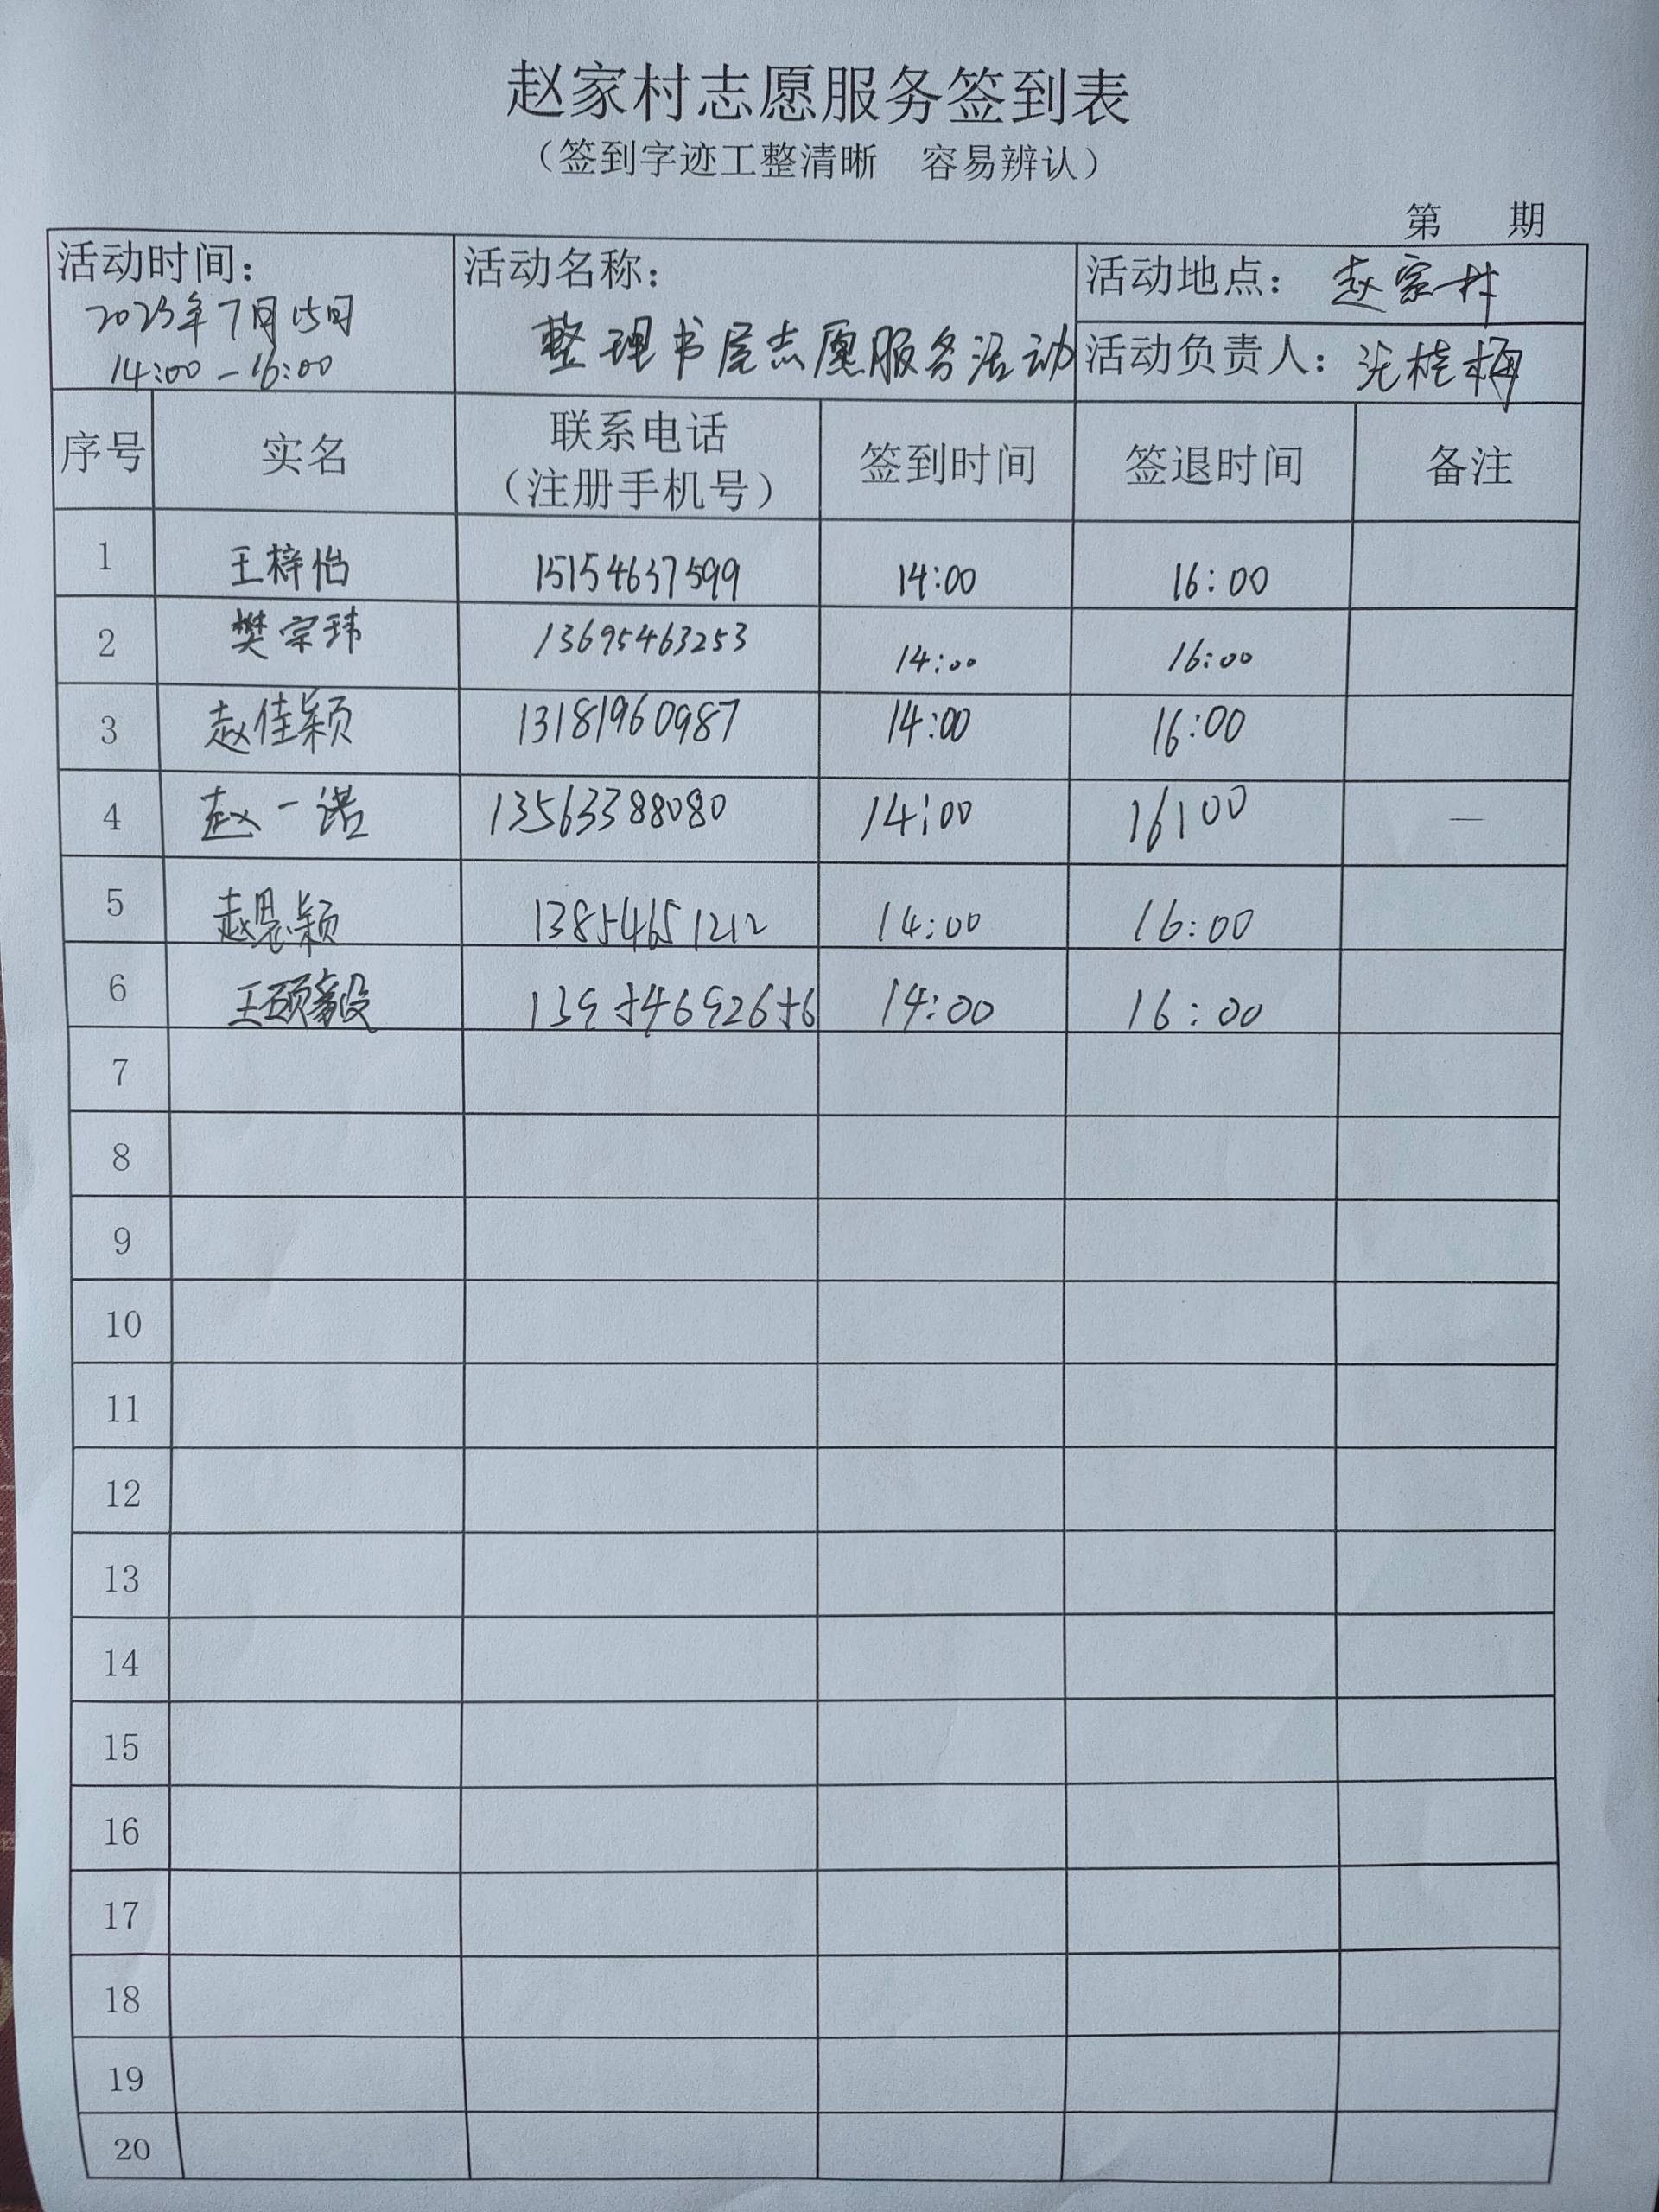 赵家村志愿服务签到表
（签到字迹工整清晰 容易辨认）
第 期
活动时间：
2023年7月15日
14:00-16:00
活动名称：
整理书屋志愿服务活动
活动地点： 赵家村
活动负责人：张桂梅
序号 实名 联系电话（注册手机号） 签到时间 签退时间 备注
1 王梓怡 15154637599 14:00 16:00
2 樊宗玮 13695463253 14:00 16:00
3 赵佳颖 13181960987 14:00 16:00
4 赵一诺 13563388080 14:00 16:00 —
5 赵晨颖 13854651212 14:00 16:00
6 王硕毅 13954692656 14:00 16:00
7
8
9
10
11
12
13
14
15
16
17
18
19
20